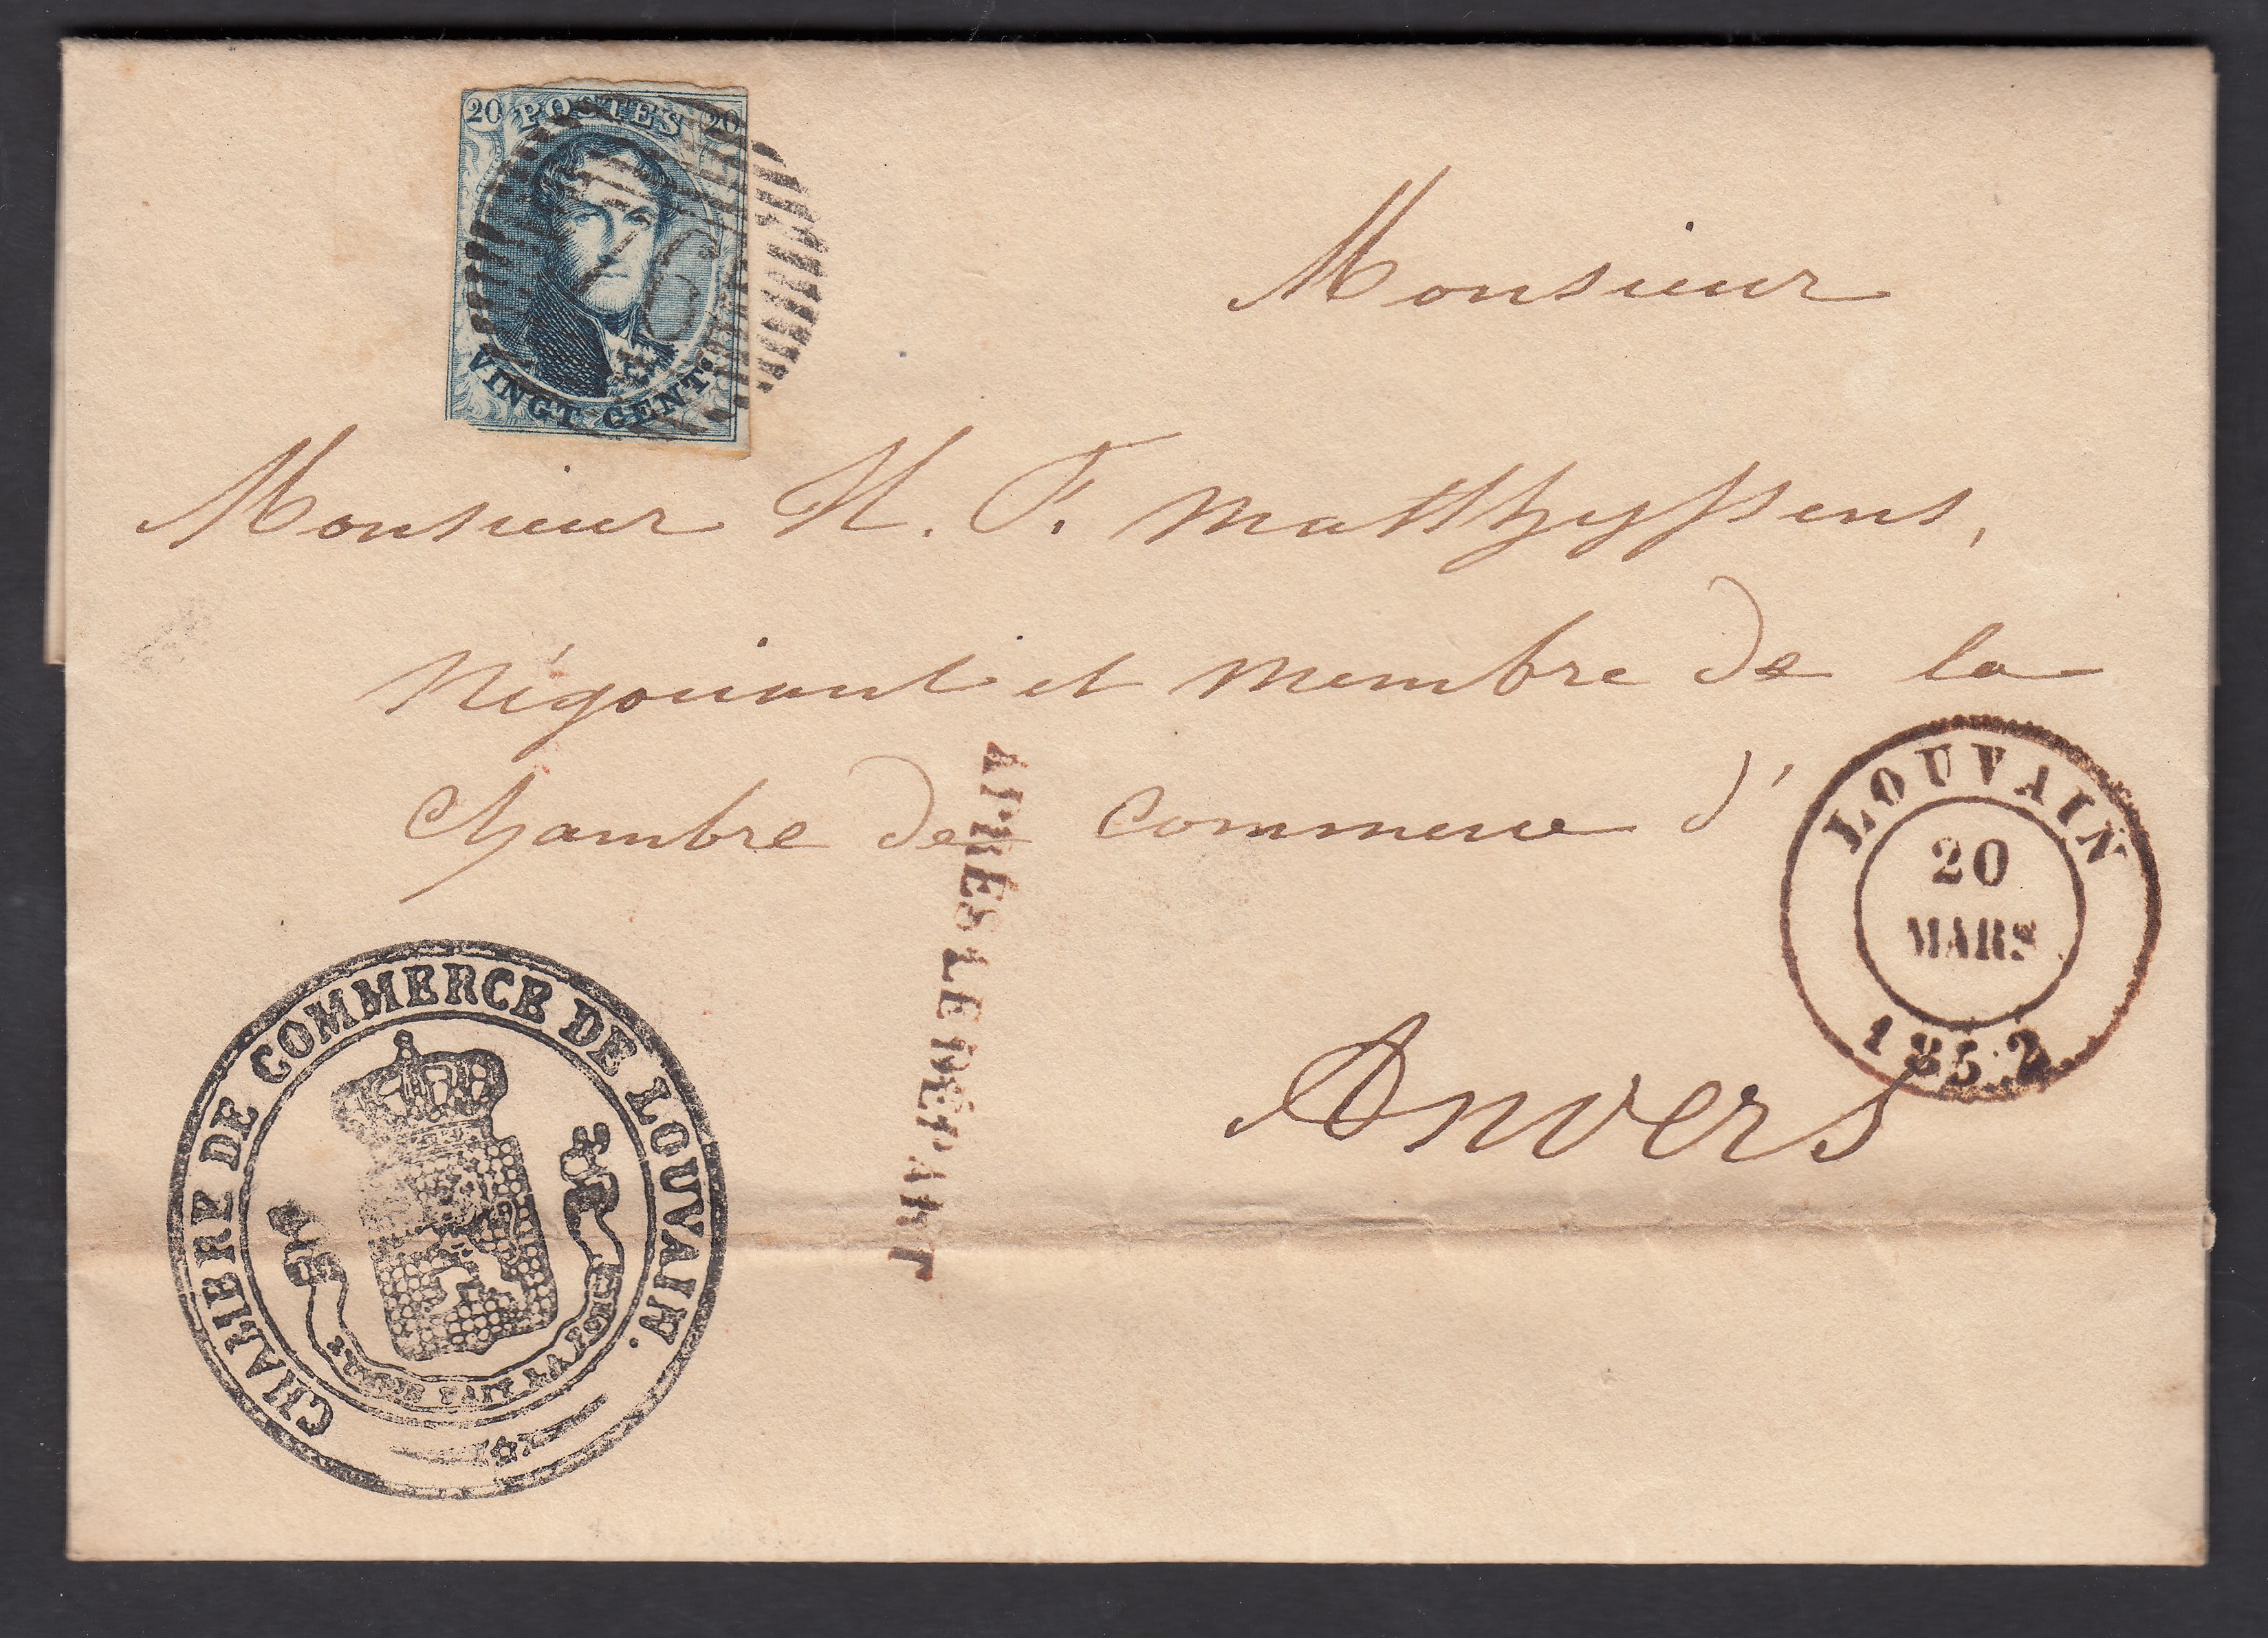 20 POSTES 20
76
VINGT CENTS
Monsieur
Monsieur H. F. Matthyssens,
Négociant et Membre de la
Chambre de Commerce d'
Anvers
APRÈS LE DÉPART
LOUVAIN
20
MARS
1852
CHAMBRE DE COMMERCE DE LOUVAIN.